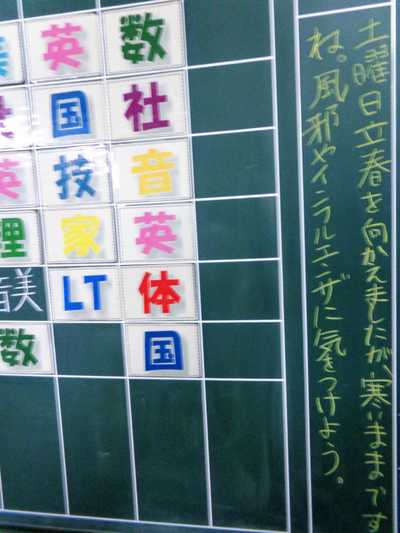 英 数
国 社
英 技 音
理 家 英
音美 LT 体
数 国
土曜日立春を向かえましたが、寒いままです
ね。風邪やインフルエンザに気をつけよう。